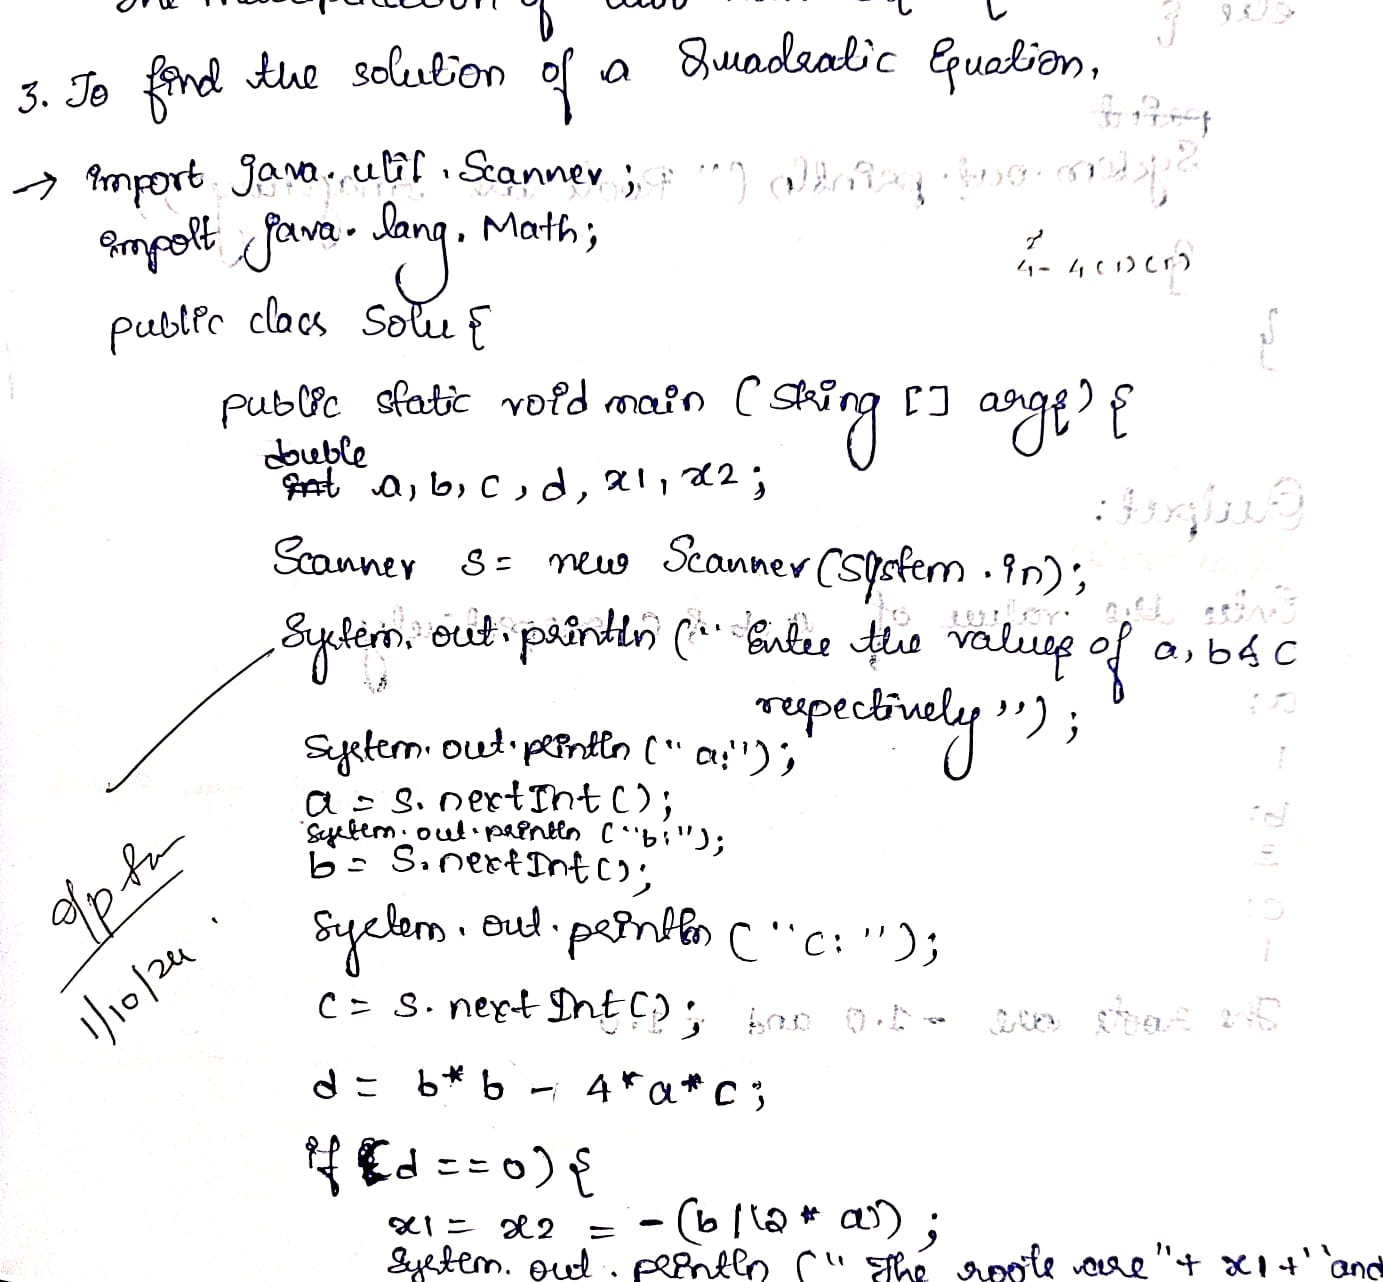 3. To find the solution of a Quadratic Equation,
→ import java.util.Scanner;
import java.lang.Math;
4- 4(1)(1)
public class Solu {
public static void main (String [] args) {
double
int a, b, c, d, x1, x2;
Scanner S = new Scanner(System.in);
System.out.println ("Enter the values of a, b & c
respectively");
System.out.println ("a:");
a = S.nextInt();
System.out.println ("b:");
b = S.nextInt();
o/p
1/10/24
System.out.println ("c:");
c = S.nextInt();
d = b*b - 4*a*c;
if (d==0) {
x1 = x2 = -(b/(2*a));
System.out.println ("The roots are"+ x1 +"and